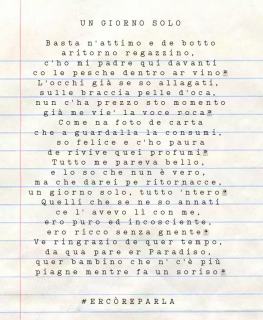 UN GIORNO SOLO
Basta n'attimo e de botto
aritorno regazzino,
c'ho mi padre qui davanti
co le pesche dentro ar vino
L'occhi già se so allagati,
sulle braccia pelle d'oca,
nun c'ha prezzo sto momento
già me vie' la voce roca
Come na foto de carta
che a guardalla la consumi,
so felice e c'ho paura
de rivive quei profumi
Tutto me pareva bello,
e lo so che nun è vero,
ma che darei pe ritornacce,
un giorno solo, tutto 'ntero
Quelli che se ne so annati
ce l' avevo lì con me,
ero puro ed incosciente,
ero ricco senza gnente
Ve ringrazio de quer tempo,
da qua pare er Paradiso,
quer bambino che n' c'è più
piagne mentre fa un soriso
#ERCÒREPARLA